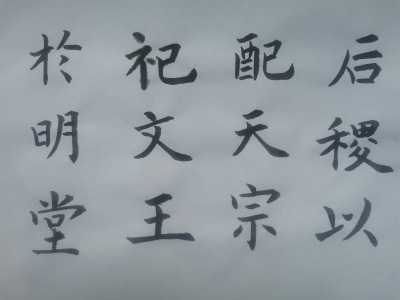 后稷以
配天宗
祀文王
於明堂